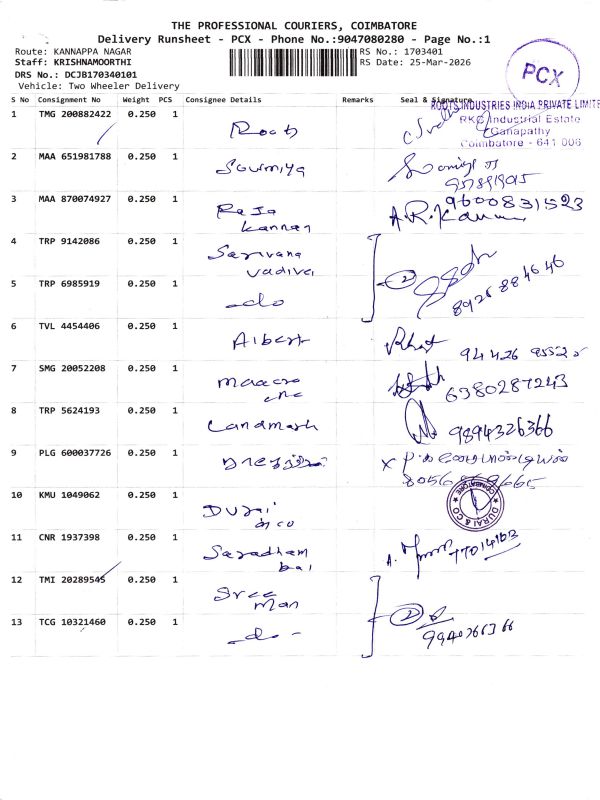 THE PROFESSIONAL COURIERS, COIMBATORE
Delivery Runsheet - PCX - Phone No.:9047080280 - Page No.:1
Route: KANNAPPA NAGAR
RS No.: 1703401
Staff: KRISHNAMOORTHI
RS Date: 25-Mar-2026
DRS No.: DCJB170340101
Vehicle: Two Wheeler Delivery
PCX
S No Consignment No Weight PCS Consignee Details Remarks Seal & Signature
ROOTS INDUSTRIES INDIA PRIVATE LIMITE
RKG Industrial Estate
Ganapathy
Coimbatore - 641 006
1 TMG 200882422 0.250 1 Roots
2 MAA 651981788 0.250 1 Soumiya
3 MAA 870074927 0.250 1 Raja
kannan
9600831523
A.R.
4 TRP 9142086 0.250 1 Sarvana
vadivel
2
8926884646
5 TRP 6985919 0.250 1 -do
6 TVL 4454406 0.250 1 Albert
94426
7 SMG 20052208 0.250 1
6380287243
8 TRP 5624193 0.250 1 Landmark
9894326366
9 PLG 600037726 0.250 1
10 KMU 1049062 0.250 1 Durai
&co
DURAI & CO
COIMBATORE
11 CNR 1937398 0.250 1 Saradham
bal
A.
12 TMI 20289545 0.250 1 Sree
man
2
13 TCG 10321460 0.250 1 -do-